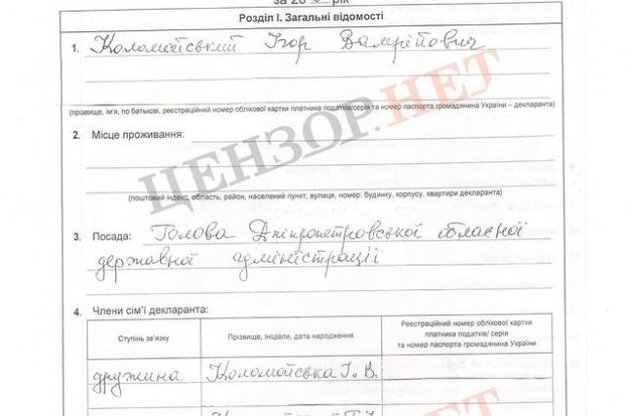 за 20 рік
Розділ І. Загальні відомості
1. Коломойський Ігор Валерійович
(прізвище, ім'я, по батькові, реєстраційний номер облікової картки платника податків/серія та номер паспорта громадянина України – декларанта)
2. Місце проживання:
(поштовий індекс, область, район, населений пункт, вулиця, номер: будинку, корпусу, квартири декларанта)
3. Посада: Голова Дніпропетровської обласної
державної адміністрації
4. Члени сім'ї декларанта:
Ступінь зв'язку Прізвище, ініціали, дата народження Реєстраційний номер облікової картки
платника податків/ серія
та номер паспорта громадянина України
дружина Коломойська І. В.
ЦЕНЗОР.НЕТ